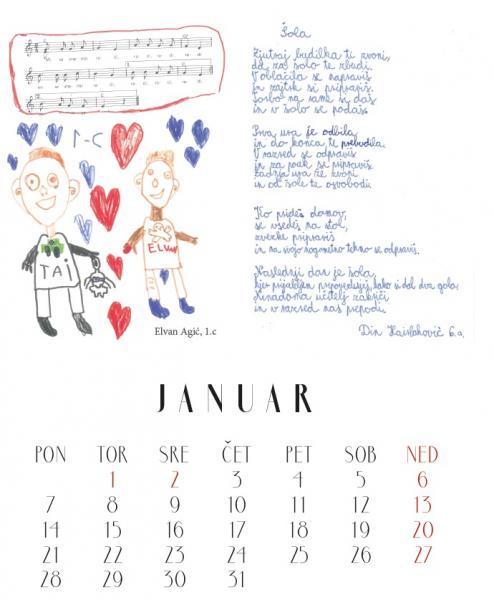 1-C
TA
ELVAN
Elvan Agić, 1.c
Šola
Zjutraj budilka ti zvoni,
da za šolo te zbudi.
V oblačila se napraviš
in zajtrk si pripraviš.
Torbo na rame si daš
in v šolo se podaš.
Prva ura je odbila
in do konca te prebudila.
V razred se odpraviš
in za pouk se pripraviš.
Zadnja ura že zvoni
in od šole te osvobodi.
Ko prideš domov,
se usedeš na stol,
zvezke pripraviš
in na svojo nogometno tekmo se odpraviš.
Naslednji dan je šola,
kjer prijateljem pripoveduješ, kako si dal dva gola.
Nenadoma učitelj zakriči
in v razred nas prepodi.
Din 6.a
JANUAR
PON TOR SRE ČET PET SOB NED
1 2 3 4 5 6
7 8 9 10 11 12 13
14 15 16 17 18 19 20
21 22 23 24 25 26 27
28 29 30 31